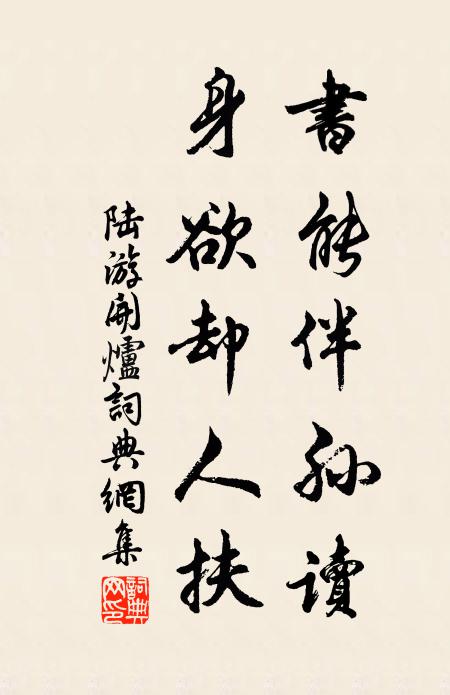 書能伴孙讀
身欲却人扶
陆游開爐詞典網集
詞典网印